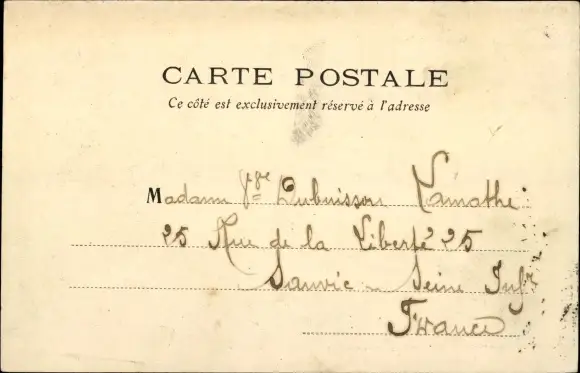 CARTE POSTALE
Ce côté est exclusivement réservé à l'adresse
Madame Vve Dubuisson Lamathe
25 Rue de la Liberté 25
Sanvic - Seine Infre
France